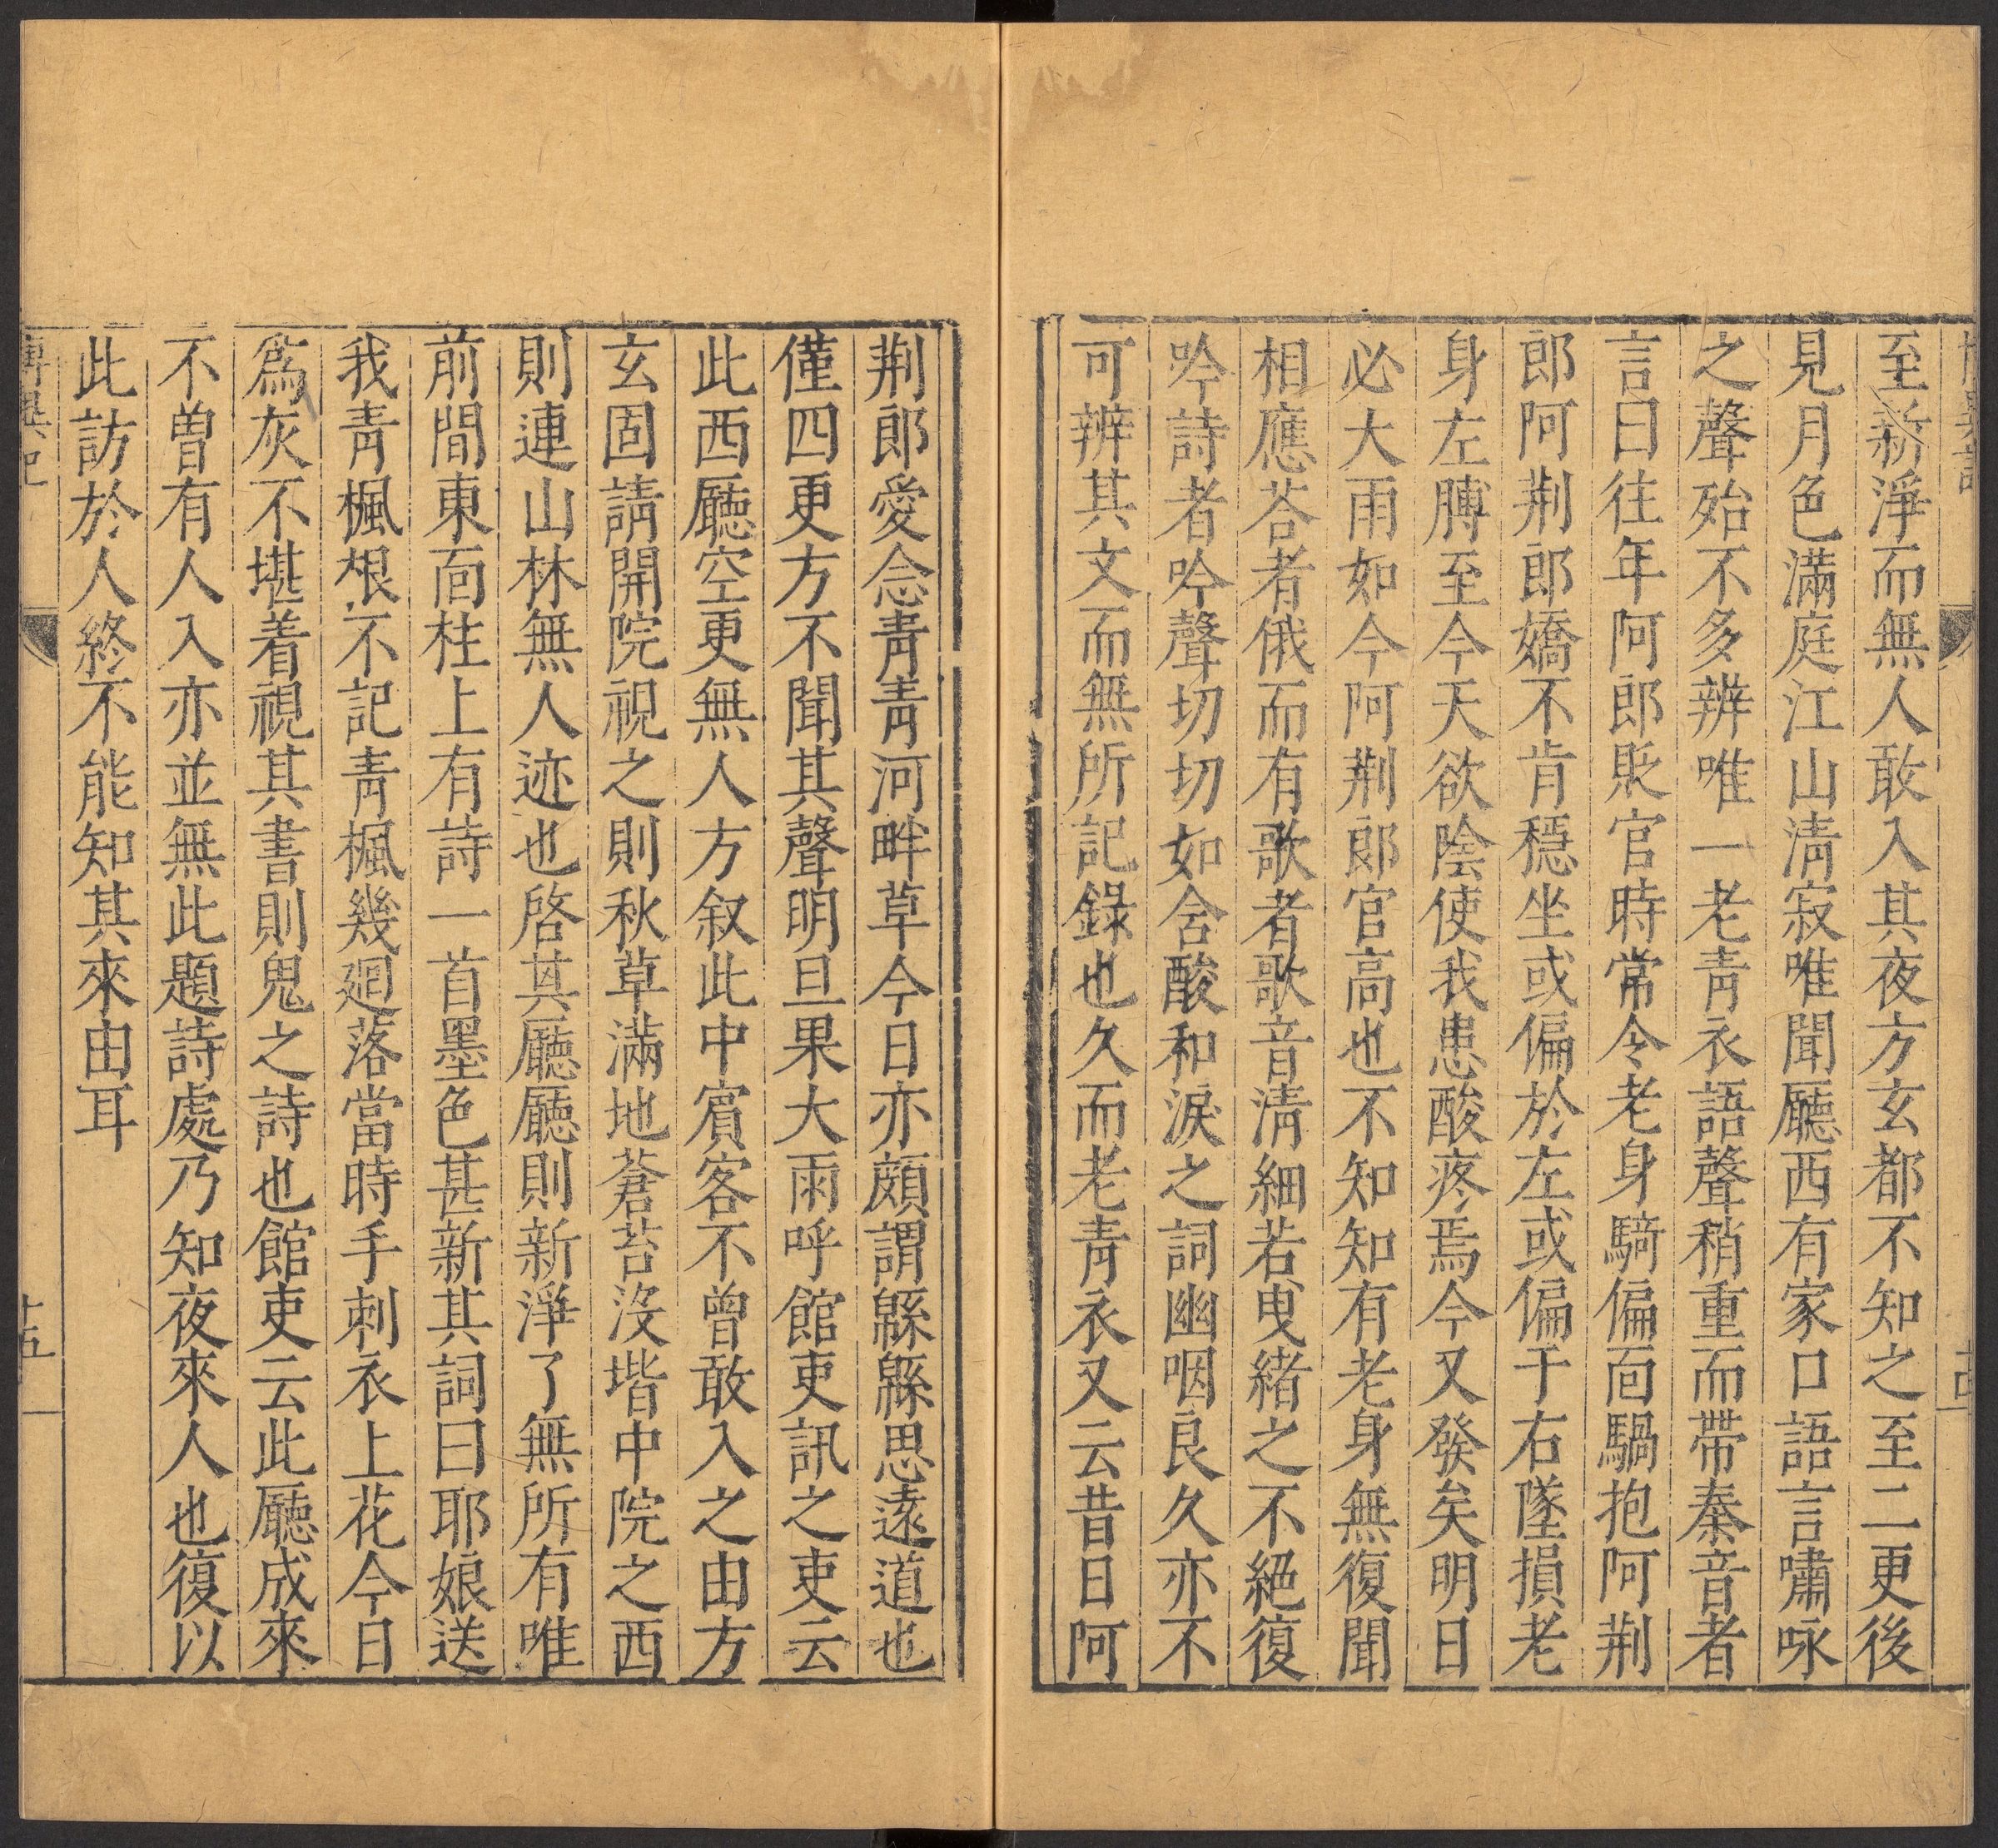 至新淨而無人敢入其夜方玄都不知之至二更後
見月色滿庭江山清寂唯聞廳西有家口語言嘯咏
之聲殆不多辨唯一老青衣語聲稍重而帶秦音者
言曰往年阿郎貶官時常令老身騎偏面騧抱阿荆
郎阿荆郎嬌不肯穩坐或偏於左或偏于右墜損老
身左膊至今天欲陰使我患酸疼焉今又發矣明日
必大雨如今阿荆郎官高也不知知有老身無復聞
相應荅者俄而有歌者歌音清細若曳緒之不絕復
吟詩者吟聲切切如含酸和淚之詞幽咽良久亦不
可辨其文而無所記錄也久而老青衣又云昔日阿
荆郎愛念青青河畔草今日亦頗謂緜緜思遠道也
僅四更方不聞其聲明旦果大雨呼館吏訊之吏云
此西廳空更無人方叙此中賔客不曾敢入之由方
玄固請開院視之則秋草滿地蒼苔沒堦中院之西
則連山林無人迹也啓其廳廳則新淨了無所有唯
前間東面柱上有詩一首墨色甚新其詞曰耶娘送
我青楓根不記青楓幾廻落當時手刺衣上花今日
爲灰不堪着視其書則鬼之詩也館吏云此廳成來
不曽有人入亦並無此題詩處乃知夜來人也復以
此訪於人終不能知其來由耳
十五